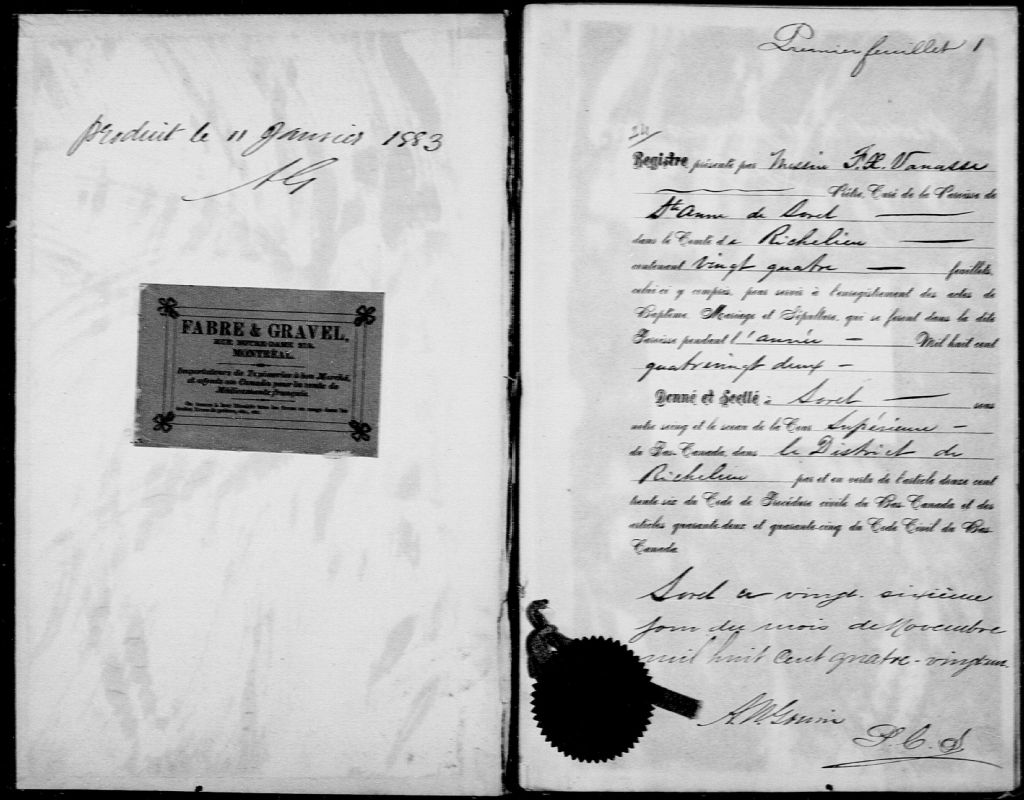 Produit le 11 Janvier 1883
AG
FABRE & GRAVEL,
RUE NOTRE-DAME 219.
MONTRÉAL.
Importateurs de Tapisseries à bon Marché,
et agents en Canada pour la vente de
Médicaments français.
Premier feuillet 1
24
Registre présenté par Messire F. X. Vanasse
Prêtre, Curé de la Paroisse de
Ste Anne de Sorel
dans le Comté de Richelieu
contenant vingt quatre feuillets,
celui-ci y compris, pour servir à l'enregistrement des actes de
Baptême, Mariage et Sépulture, qui se feront dans la dite
Paroisse pendant l'année Mil huit cent
quatrevingt deux
Donné et Scellé à Sorel sous
notre seing et le sceau de la Cour Supérieure
du Bas-Canada, dans le District de
Richelieu par et en vertu de l'article douze cent
trente six du Code de Procédure civile du Bas-Canada et des
articles quarante-deux et quarante-cinq du Code Civil du Bas-
Canada.
Sorel ce vingt sixième
jour du mois de Novembre
mil huit cent quatre-vingt un
A. N. Gouin
P. C. S.